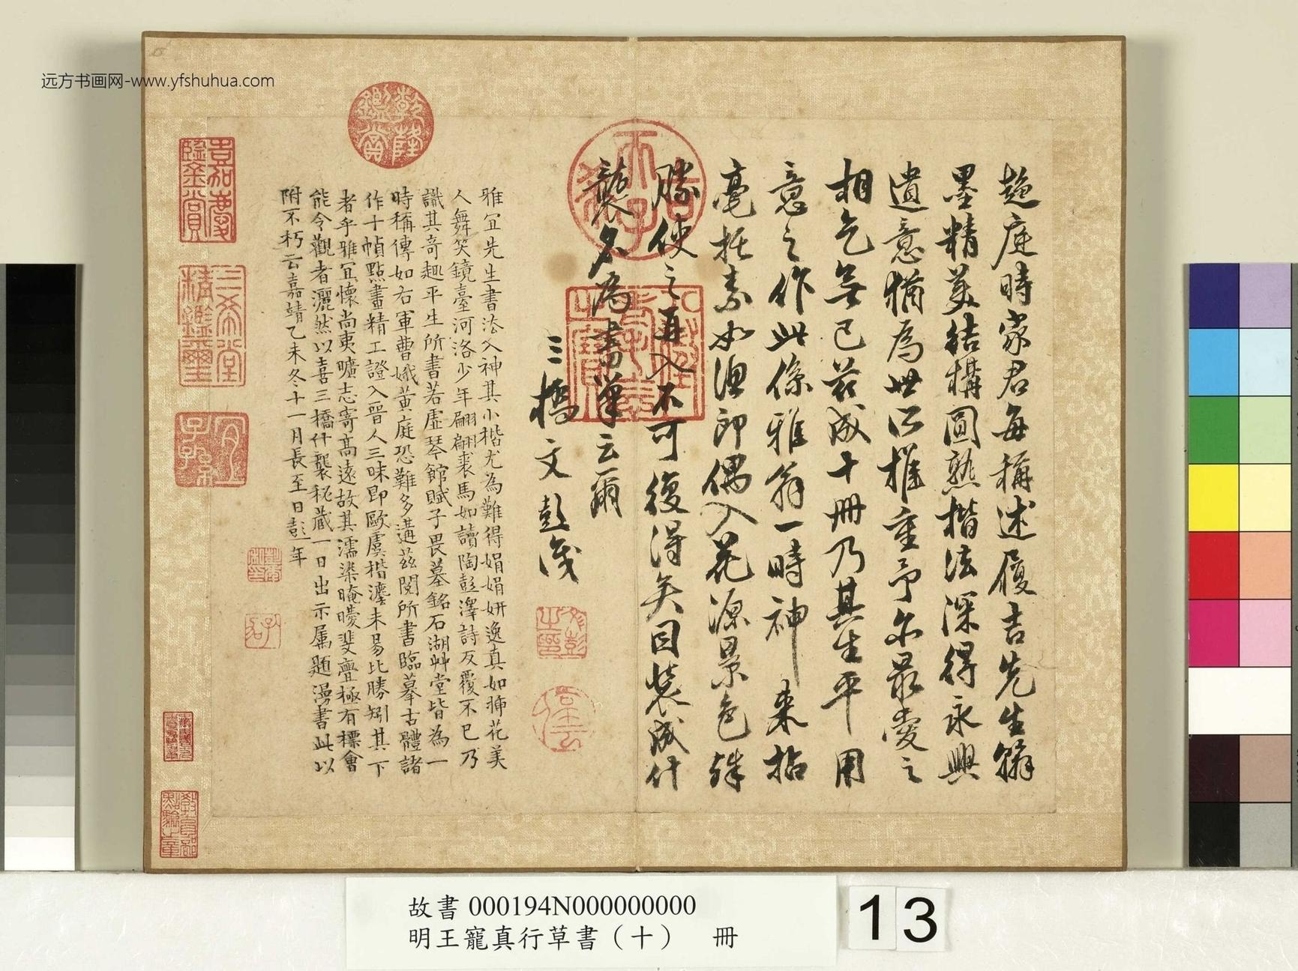 远方书画网-www.yfshuhua.com
趨庭時家君每稱述履吉先生籍
墨精美結構圓熟楷法深得永興
遺意猶為世所推重予尔最愛之
相乞無已茲成十冊乃其生平用
意之作此係雅翁一時神來拈
毫拓素如漁郎偶入花源景色殊
勝使之再入不可復得矣因裝成什
襲名為書巢云爾
三橋文彭識
雅宜先生書法入神其小楷尤為難得娟娟妍逸真如插花美
人舞笑鏡臺河洛少年翩翩裘馬如讀陶彭澤詩反覆不已乃
識其奇趣平生所書若虛琴館賦子畏墓銘石湖艸堂皆為一
時稱傳如右軍曹娥黃庭恐難多遘茲閱所書臨摹古體諸
作十幀點畫精工證入晉人三昧即歐虞楷瀍未易比勝矧其下
者乎雅宜懷尚夷曠志寄高遠故其濡染晻曖斐亹極有標會
能令觀者灑然以喜三橋什襲秘藏一日出示属題漫書此以
附不朽云嘉靖乙未冬十一月長至日彭年
乾隆鑑賞
嘉慶鑑賞
三希堂精鑑璽
宜子孫
古希天子
文彭之印
故書 000194N000000000
明王寵真行草書（十） 冊
13